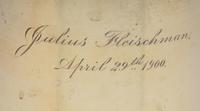 Julius Fleischman.
April 29th 1900.